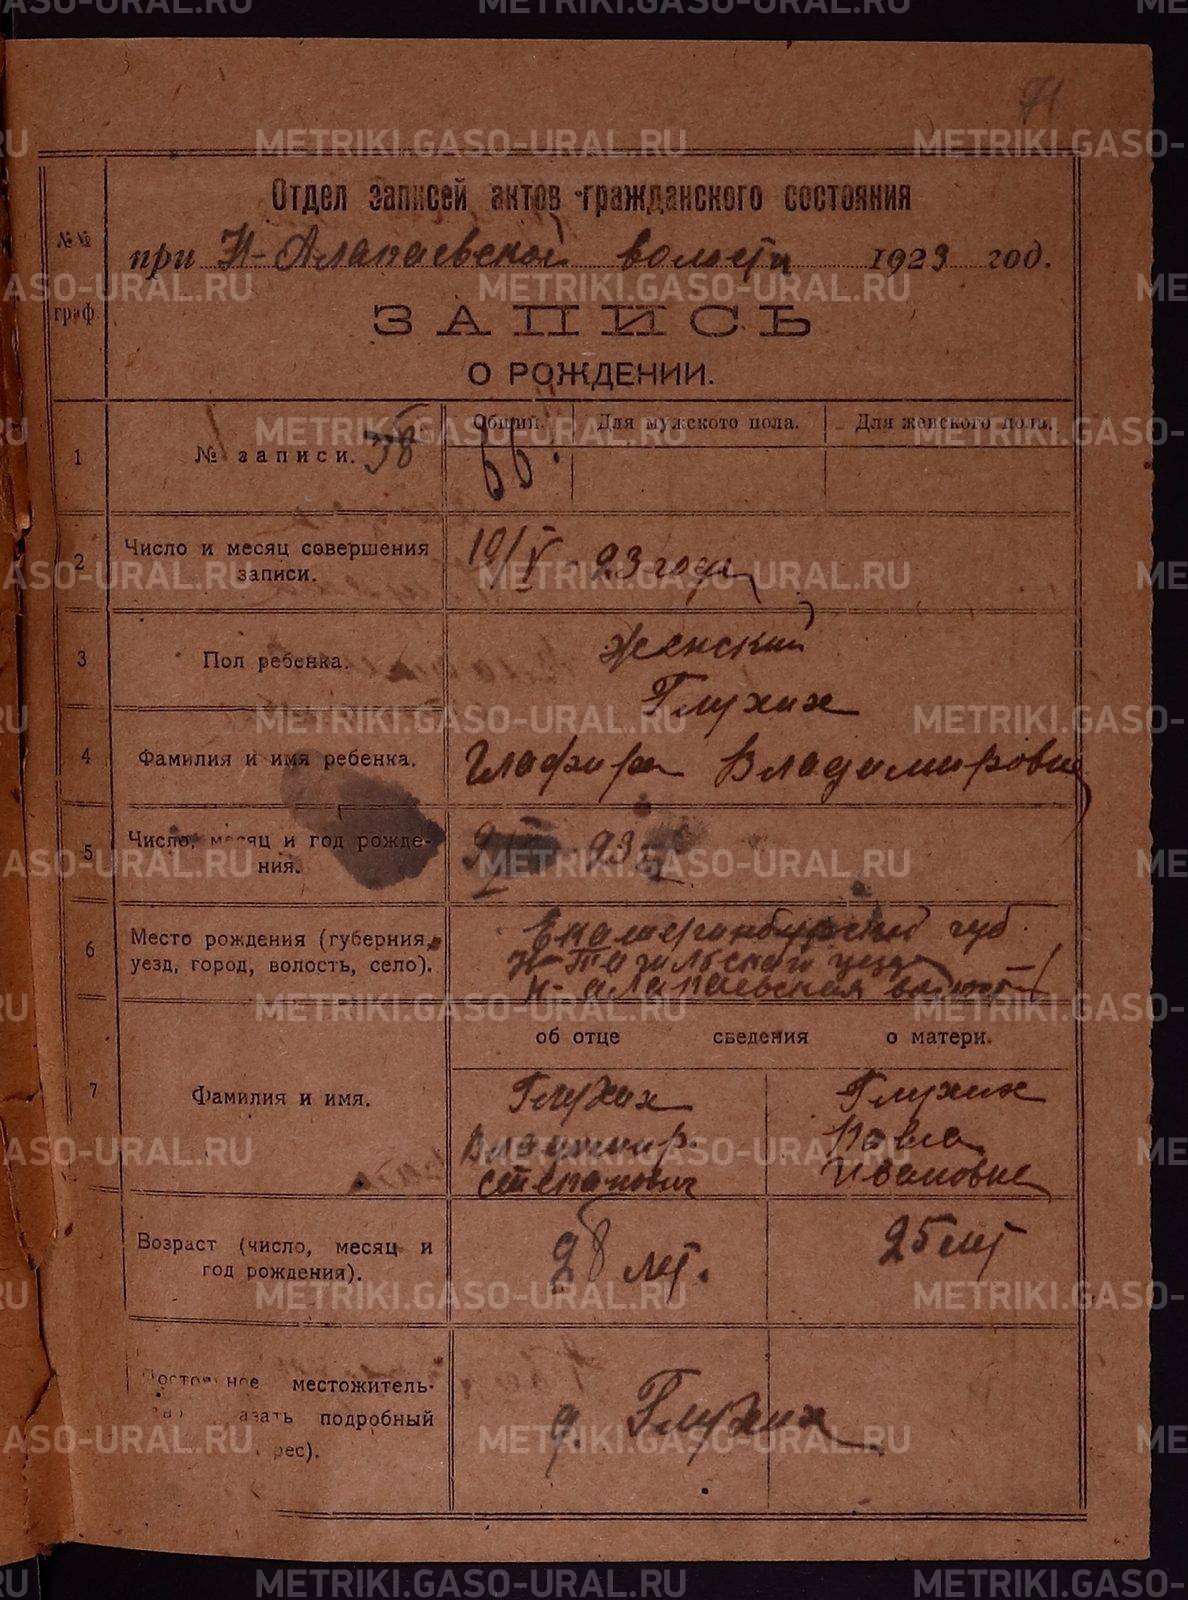 71
Отдел записей актов гражданского состояния
№№ граф
при Н-Алапаевской волости 1923 год.
ЗАПИСЬ
О РОЖДЕНИИ.
Общий. Для мужского пола. Для женского пола.
1 № записи. 38 66.
2 Число и месяц совершения записи. 10/V - 23 года
3 Пол ребенка. Женский
Глухих
4 Фамилия и имя ребенка. Глафира Владимировна
5 Число, месяц и год рождения. 23
6 Место рождения (губерния, уезд, город, волость, село).
Екатеринбургской губ.
Н-Тагильского уезда
Н-Алапаевская волость
об отце сведения о матери.
7 Фамилия и имя.
Глухих Глухих
Владимир. Павла
Степанович Ивановна
Возраст (число, месяц и год рождения). 28 лет. 25 лет
местожитель-
подробный
д. Глухих
METRIKI.GASO-URAL.RU